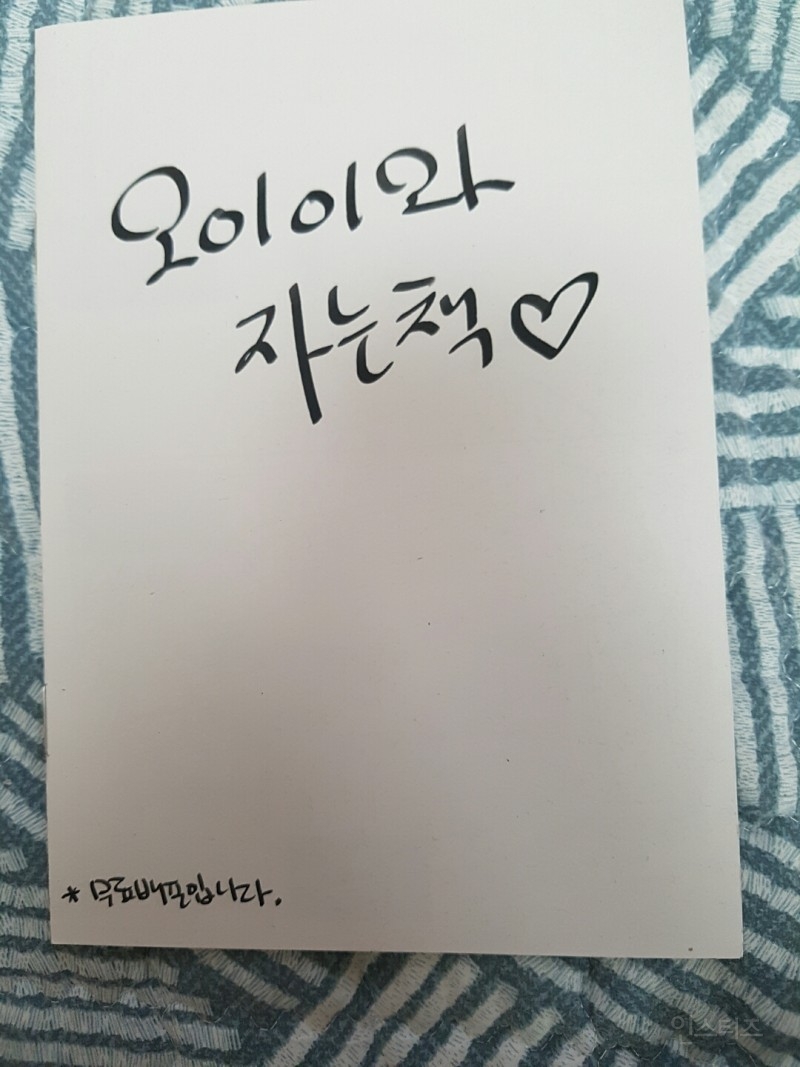 오이이와
자는책♡
* 무료배포입니다.
인스티즈